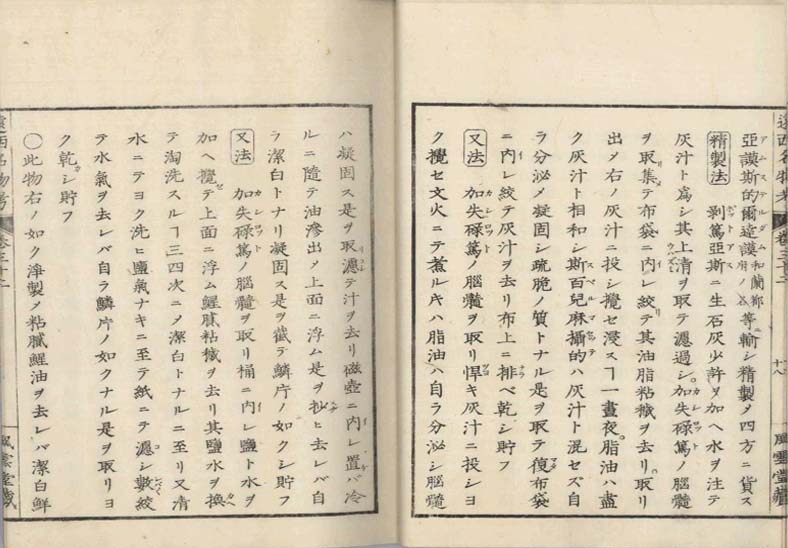 遠西名物考 卷三十二 十八 風雲堂藏
亞謨斯的爾達謨和蘭都府ノ名等ニ輸シ精製メ四方ニ貨ス
精製法 剥篤亞斯ニ生石灰少許ヲ加ヘ水ヲ注テ
灰汁ト爲シ其上清ヲ取テ濾過シ加失碌篤ノ腦髓
ヲ取集テ布袋ニ内レ絞テ其油脂粘穢ヲ去リ取リ
出メ右ノ灰汁ニ投シ攪セ浸スヿ一晝夜脂油ハ盡
ク灰汁ト相和シ斯百兒麻攝的ハ灰汁ト混セズ自
ラ分泌メ凝固シ疏脆ノ質トナル是ヲ取テ復布袋
ニ内レ絞テ灰汁ヲ去リ布上ニ排ベ乾シ貯フ
又法 加失碌篤ノ腦髓ヲ取リ稈キ灰汁ニ投シヨ
ク攪セ文火ニテ煮ル片ハ脂油ハ自ラ分泌シ腦髓
ハ凝固ス是ヲ取濾テ汁ヲ去リ磁壺ニ内レ置バ冷
ルニ隨テ油滲出メ上面ニ浮ム是ヲ抄ヒ去レバ自
ラ潔白トナリ凝固ス是ヲ截テ鱗片ノ如クシ貯フ
又法 加失碌篤ノ腦髓ヲ取リ桶ニ内レ鹽ト水ヲ
加ヘ攪テ上面ニ浮ム鯹膩粘穢ヲ去リ其鹽水ヲ換
テ淘洗スルヿ三四次ニメ潔白トナルニ至リ又清
水ニテヨク洗ヒ鹽氣ナキニ至テ紙ニテ濾シ數絞
テ水氣ヲ去レバ自ラ鱗片ノ如クナル是ヲ取リヨ
ク乾シ貯フ
〇此物右ノ如ク淨製メ粘膩鯹油ヲ去レバ潔白鮮
遠西名物考 卷三十二 風雲堂藏